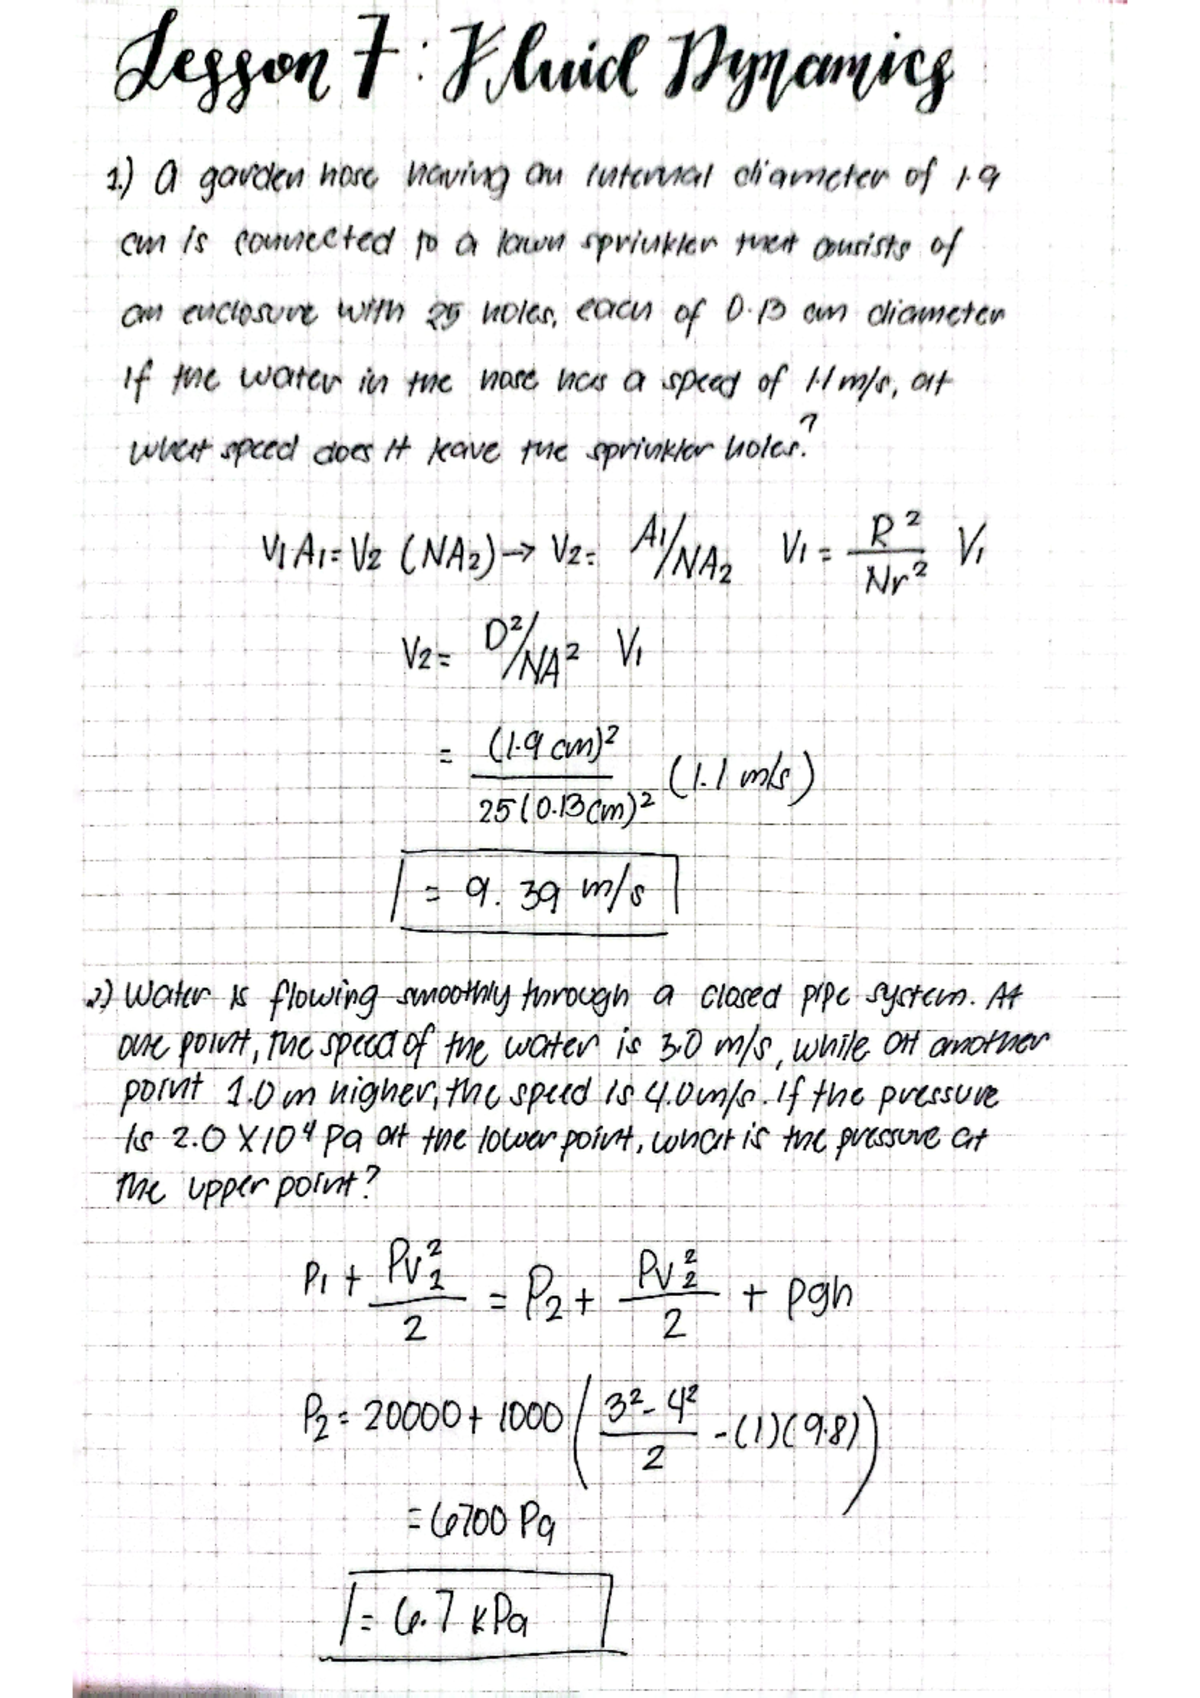 Lesson 7: Fluid Dynamics
1.) A garden hose having an internal diameter of 1.9
cm is connected to a lawn sprinkler that consists of
an enclosure with 25 holes, each of 0.13 cm diameter
If the water in the hose has a speed of 1.1 m/s, at
what speed does it leave the sprinkler holes?
V1 A1 = V2 (NA2) → V2 = A1/NA2 V1 = R²/Nr² V1
V2 = D²/NA² V1
= (1.9 cm)²/25(0.13cm)² (1.1 m/s)
= 9.39 m/s
2) Water is flowing smoothly through a closed pipe system. At
one point, the speed of the water is 3.0 m/s, while at another
point 1.0 m higher, the speed is 4.0 m/s. If the pressure
is 2.0 X 10⁴ Pa at the lower point, what is the pressure at
the upper point?
P1 + Pv₁²/2 = P2 + Pv₂²/2 + pgh
P2 = 20000 + 1000 (3² - 4²/2 - (1)(9.8))
= 6700 Pa
= 6.7 kPa